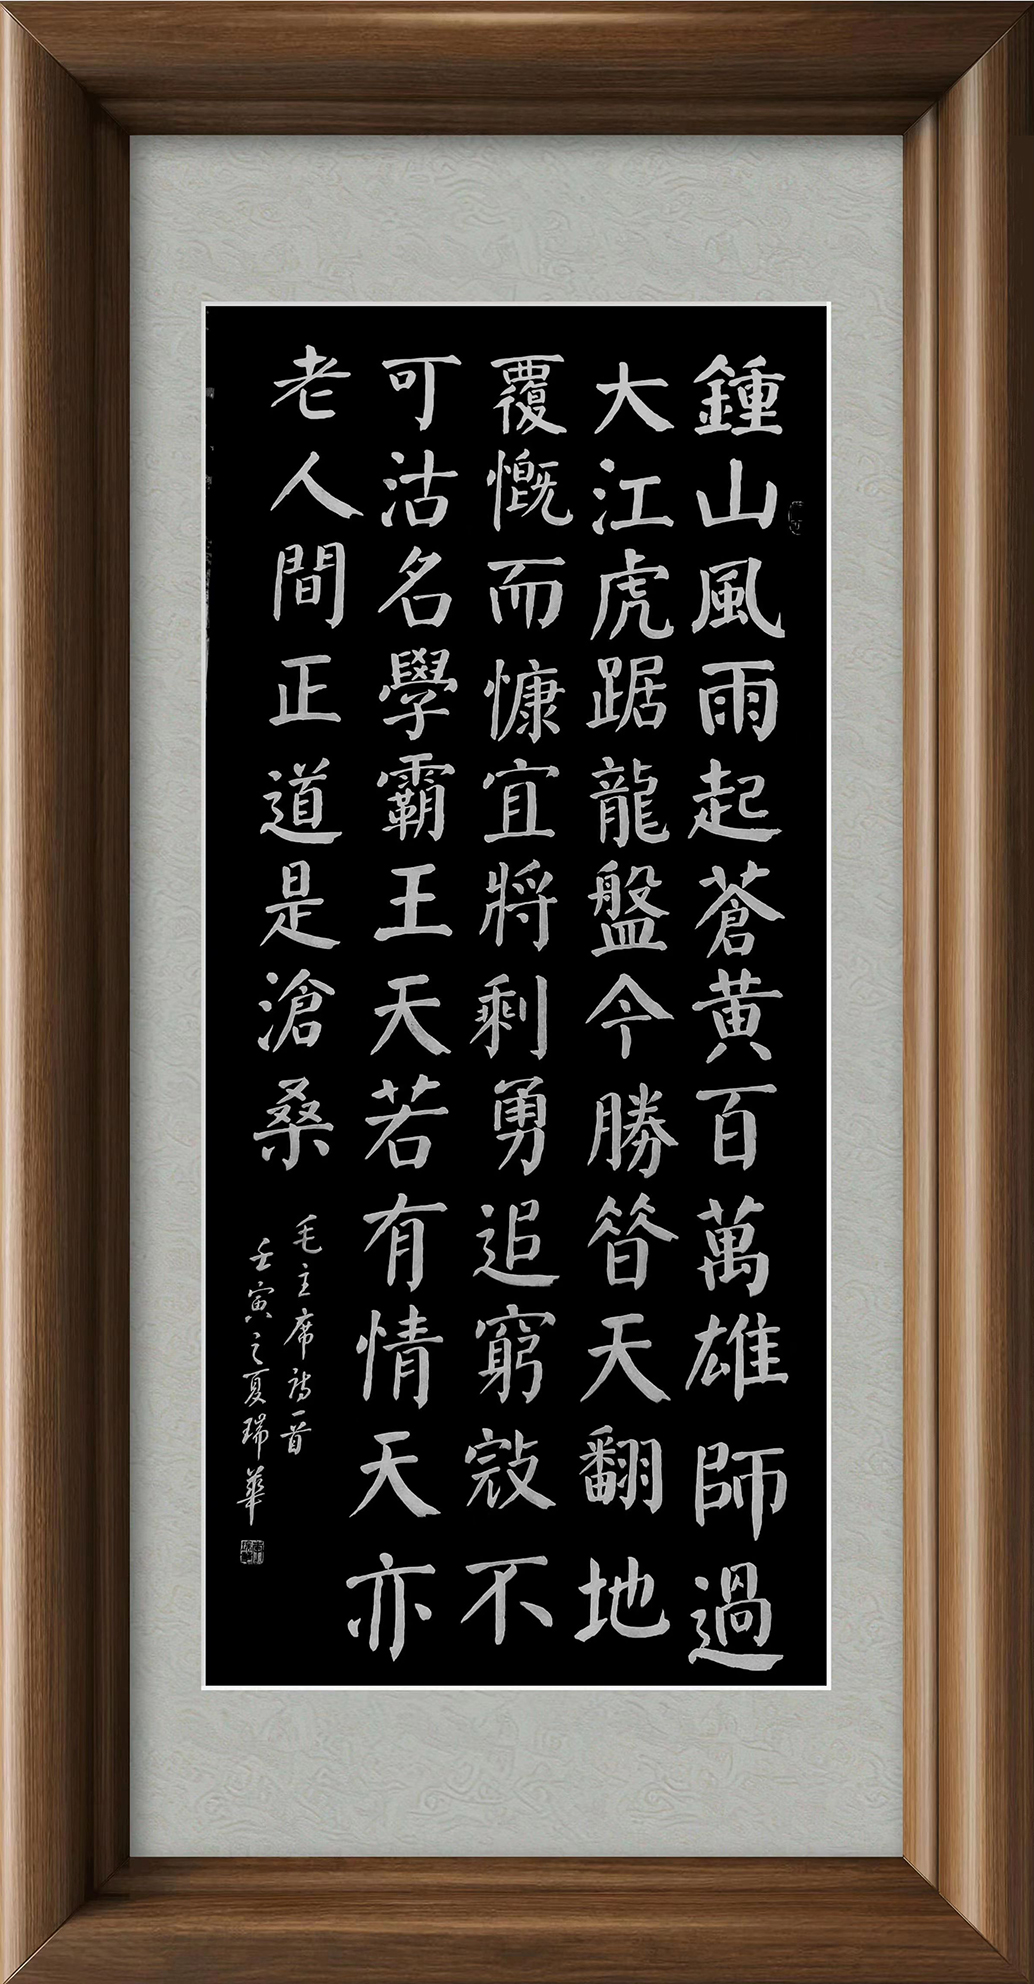 鍾山風雨起蒼黄百萬雄師過
大江虎踞龍盤今勝昝天翻地
覆慨而慷宜將剩勇追窮敥不
可沽名學霸王天若有情天亦
老人間正道是滄桑
毛主席詩一首
壬寅之夏瑞華